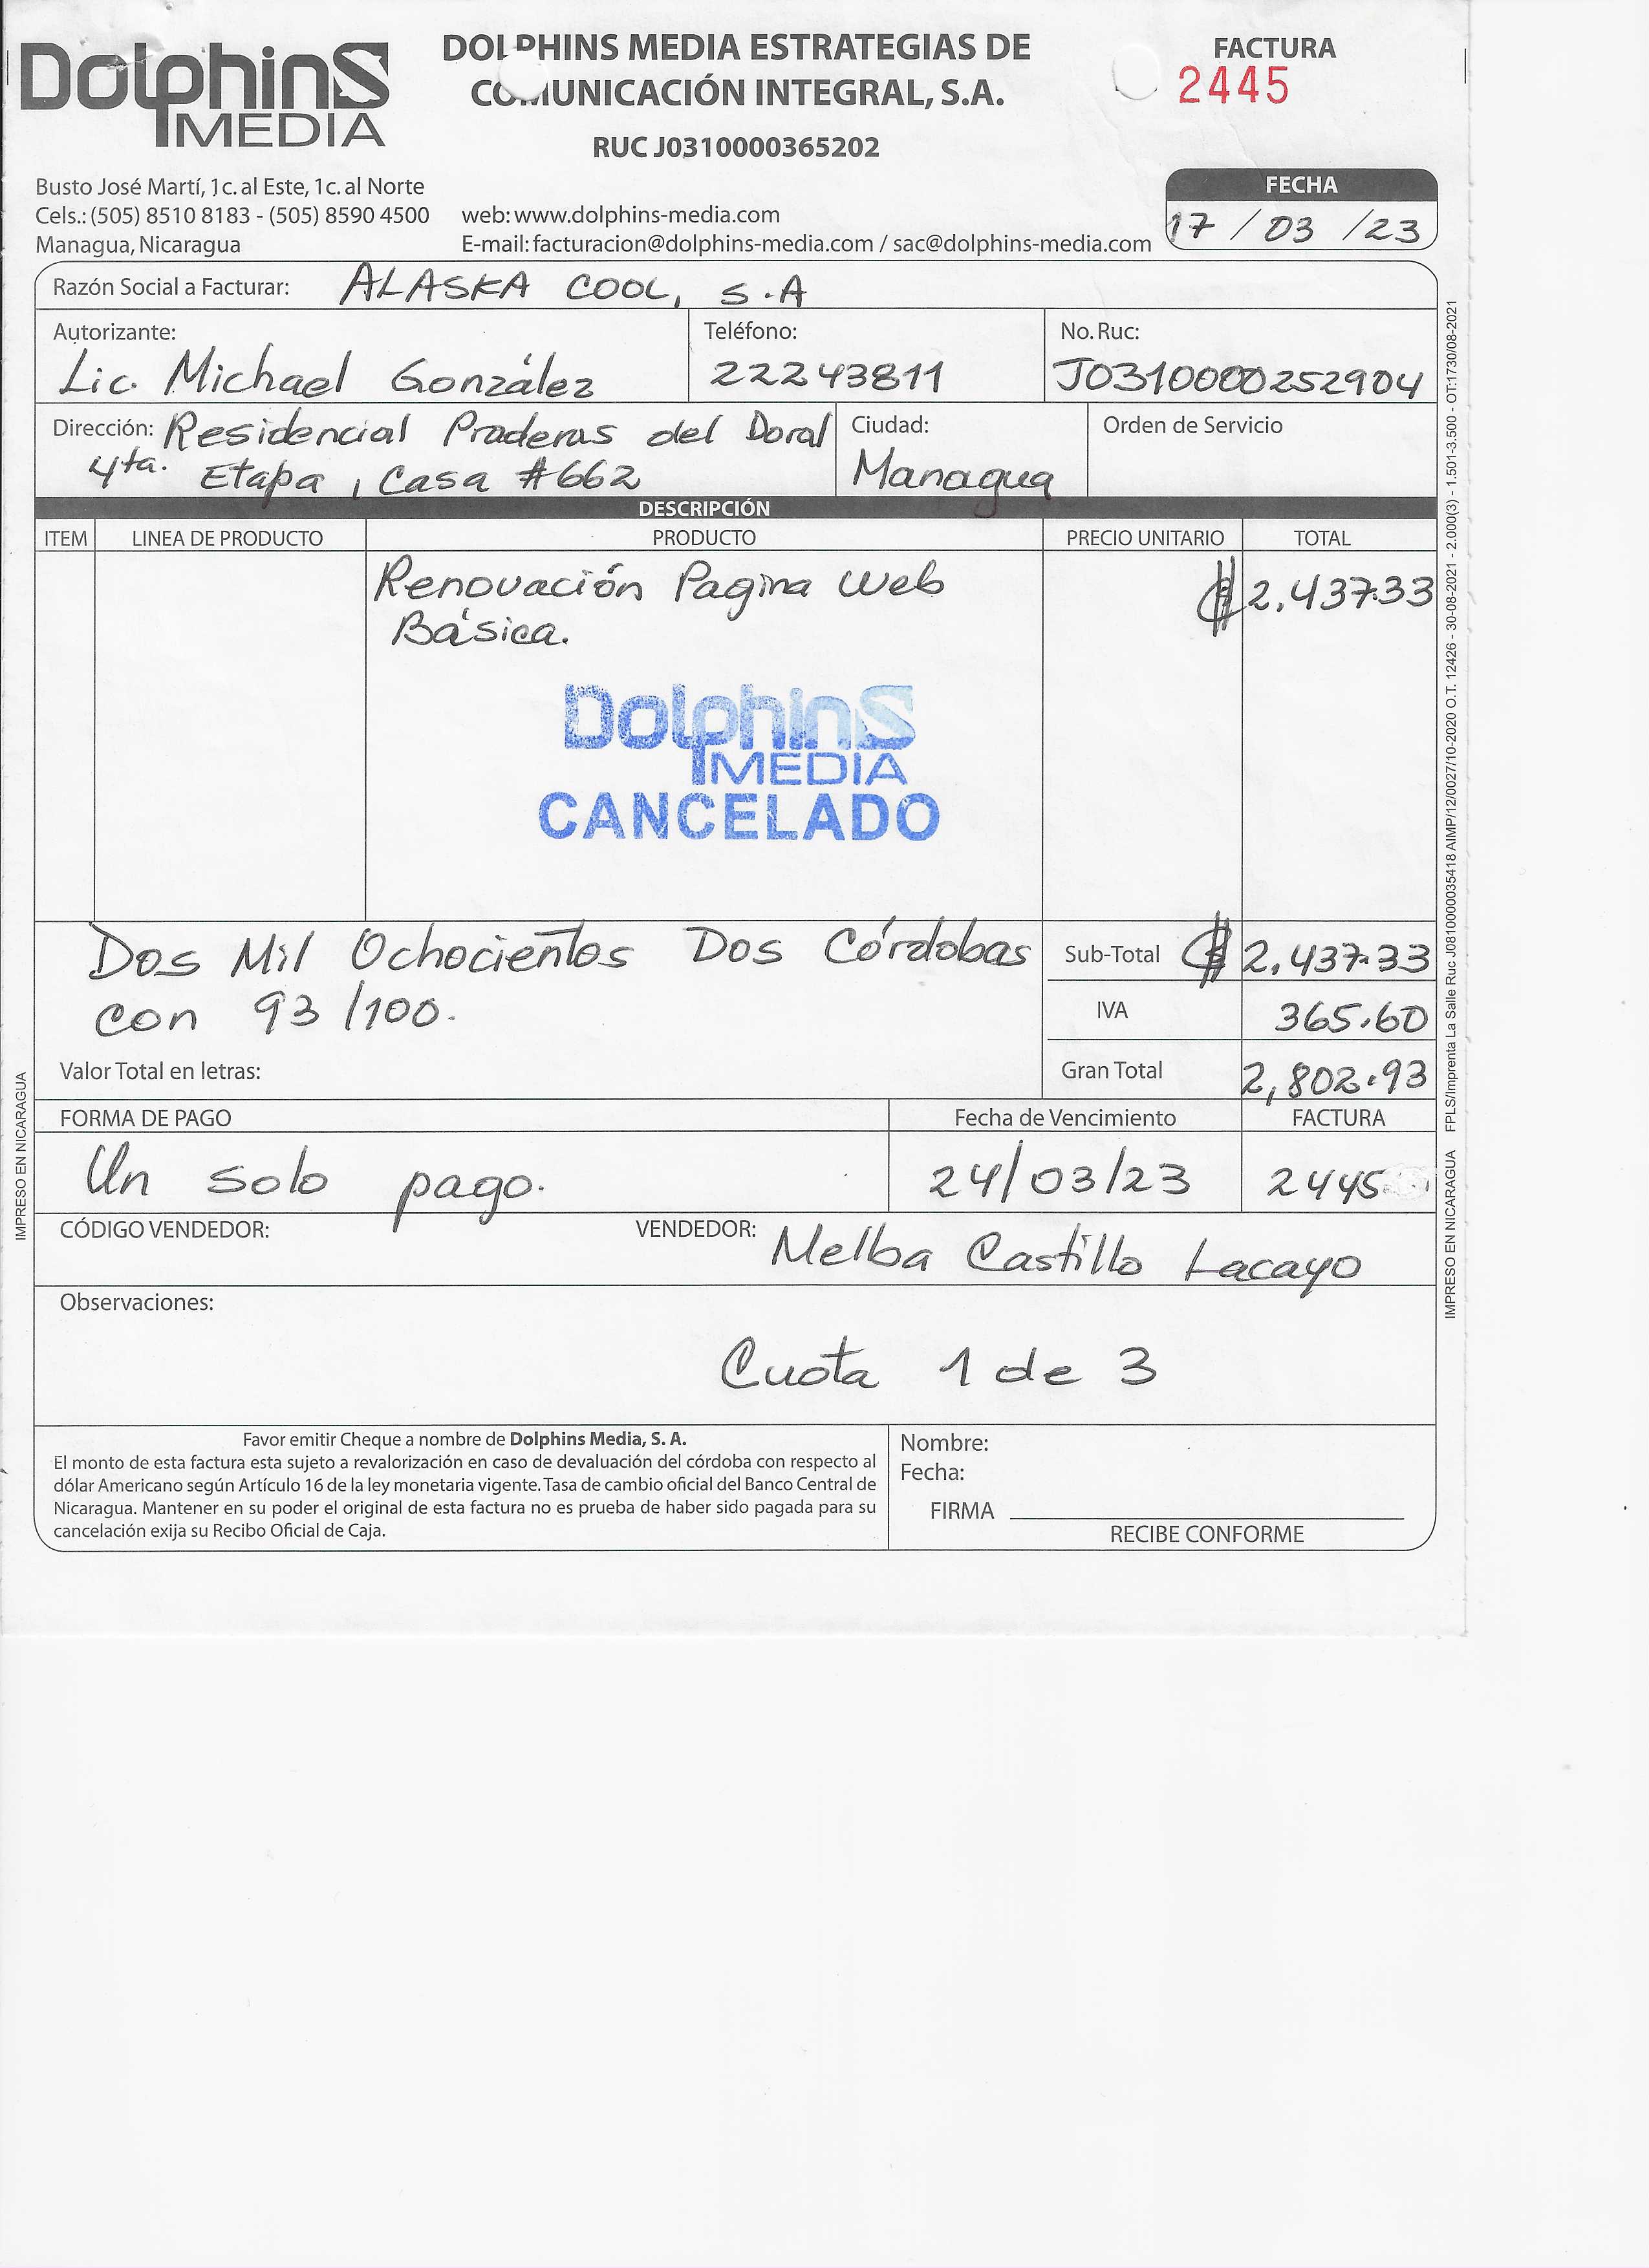 DolphinS
MEDIA
DOLPHINS MEDIA ESTRATEGIAS DE
COMUNICACIÓN INTEGRAL, S.A.
RUC J0310000365202
FACTURA
2445
Busto José Martí, 1c. al Este, 1c. al Norte
Cels.: (505) 8510 8183 - (505) 8590 4500
Managua, Nicaragua
web: www.dolphins-media.com
E-mail: facturacion@dolphins-media.com / sac@dolphins-media.com
FECHA
17 / 03 / 23
Razón Social a Facturar: ALASKA COOL, S.A
Autorizante:
Lic. Michael González
Teléfono:
22243811
No. Ruc:
J0310000252904
Dirección: Residencial Praderas del Doral
4ta. Etapa, Casa #662
Ciudad:
Managua
Orden de Servicio
DESCRIPCIÓN
ITEM LINEA DE PRODUCTO PRODUCTO PRECIO UNITARIO TOTAL
Renovación Pagina Web C$ 2,437.33
Básica.
DolphinS
MEDIA
CANCELADO
Dos Mil Ochocientos Dos Córdobas
con 93/100.
Valor Total en letras:
Sub-Total C$ 2,437.33
IVA 365.60
Gran Total 2,802.93
FORMA DE PAGO
Un solo pago.
Fecha de Vencimiento
24/03/23
FACTURA
2445
CÓDIGO VENDEDOR:
VENDEDOR: Melba Castillo Lacayo
Observaciones:
Cuota 1 de 3
Favor emitir Cheque a nombre de Dolphins Media, S. A.
El monto de esta factura esta sujeto a revalorización en caso de devaluación del córdoba con respecto al
dólar Americano según Artículo 16 de la ley monetaria vigente. Tasa de cambio oficial del Banco Central de
Nicaragua. Mantener en su poder el original de esta factura no es prueba de haber sido pagada para su
cancelación exija su Recibo Oficial de Caja.
Nombre:
Fecha:
FIRMA
RECIBE CONFORME
IMPRESO EN NICARAGUA
IMPRESO EN NICARAGUA FPLS/Imprenta La Salle Ruc J0810000035418 AIMP/12/0027/10-2020 O.T. 12426 - 30-08-2021 - 2.000(3) - 1.501-3.500 - OT:1730/08-2021